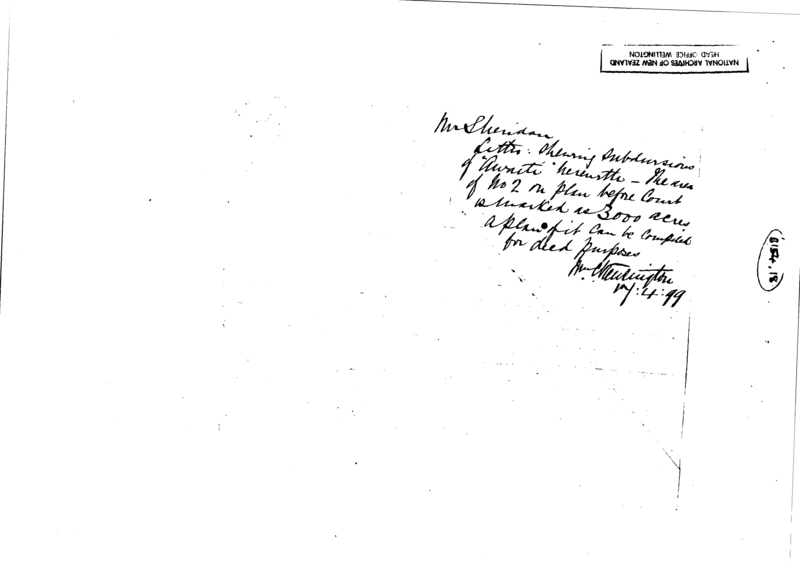 NATIONAL ARCHIVES OF NEW ZEALAND
HEAD OFFICE WELLINGTON
Mr Sheridan
Litho: shewing subdivisions
of "Awaiti" herewith – The area
of No 2 on plan before Court
is marked as 3000 acres
a plan of it can be compiled
for deed purposes
Kensington
4:99